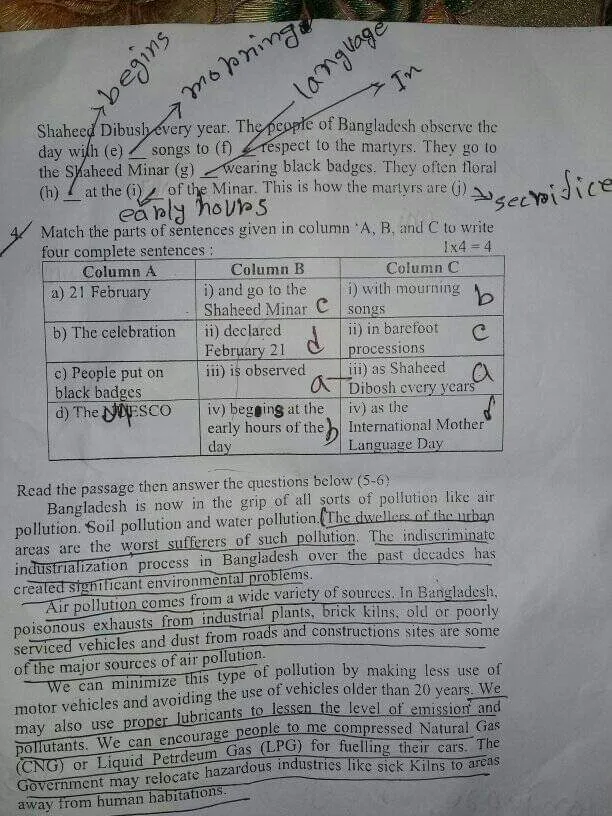 begins
morning
language
In
Shaheed Dibush every year. The people of Bangladesh observe the
day with (e) __ songs to (f) __ respect to the martyrs. They go to
the Shaheed Minar (g) __ wearing black badges. They often floral
(h) __ at the (i) __ of the Minar. This is how the martyrs are (j)
secrifice
early hours
4. Match the parts of sentences given in column ‘A, B, and C to write
four complete sentences : 1x4 = 4
Column A Column B Column C
a) 21 February i) and go to the i) with mourning
Shaheed Minar c songs b
b) The celebration ii) declared ii) in barefoot
February 21 d processions c
c) People put on iii) is observed iii) as Shaheed
black badges a Dibosh every years a
d) The UNESCO iv) begins at the iv) as the
early hours of the b International Mother d
day Language Day
Read the passage then answer the questions below (5-6)
Bangladesh is now in the grip of all sorts of pollution like air
pollution. Soil pollution and water pollution. (The dwellers of the urban
areas are the worst sufferers of such pollution. The indiscriminate
industrialization process in Bangladesh over the past decades has
created significant environmental problems.
Air pollution comes from a wide variety of sources. In Bangladesh,
poisonous exhausts from industrial plants, brick kilns, old or poorly
serviced vehicles and dust from roads and constructions sites are some
of the major sources of air pollution.
We can minimize this type of pollution by making less use of
motor vehicles and avoiding the use of vehicles older than 20 years. We
may also use proper lubricants to lessen the level of emission and
pollutants. We can encourage people to me compressed Natural Gas
(CNG) or Liquid Petrdeum Gas (LPG) for fuelling their cars. The
Government may relocate hazardous industries like sick Kilns to areas
away from human habitations.